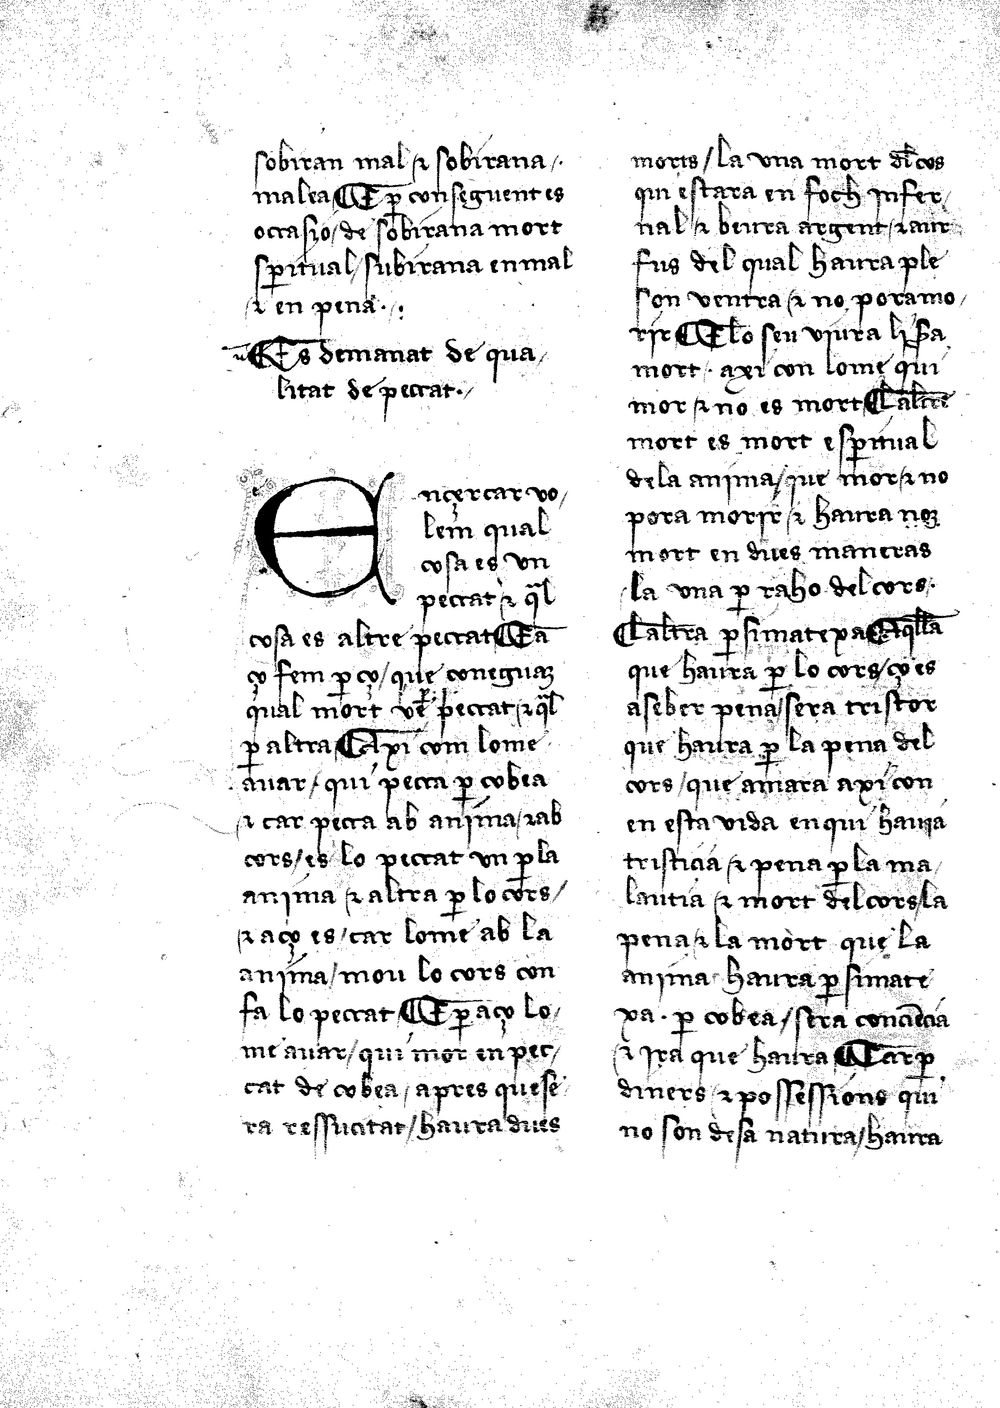 sobiran mal / ⁊ sobirana .
malea ¶ E ꝑ conseguent es
occasio / de sobirana mort
sꝑitual / subirana en mal
⁊ en pena . :
¶ Es demanat de qua /
litat de peccat . /
Ençercar vo /
lem qual
cosa es vn
peccat ⁊ ql
cosa es altre peccat ¶ E a
ço fem ꝑ ço / que coneguaꝫ
qual mort ve peccat / ⁊ ql
ꝑ altra ¶ Axi com lome
auar / qui pecca ꝑ cobea
⁊ car pecca ab anima / ⁊ ab
cors / es lo peccat vn ꝑ la
anima / ⁊ altra ꝑ lo cors /
⁊ aço es / car lome ab la
anima / mou lo cors con
fa lo peccat ¶ E ꝑ aço lo /
me auar / qui mor en pec /
cat de cobea / apres que se
ra ressucitat / haura dues
morts / la vna mort dl cos
qui estara en foch infer /
nal / ⁊ beura argent / ⁊ aur
fus del qual haura ple
son ventra / ⁊ no pora mo /
rir ¶ E lo seu viura li sa
mort . axi con lome qui
mor / ⁊ no es mort ¶ Laltre
mort es mort esꝑitual
dela anima / que mor / ⁊ no
pora morir / ⁊ haura noꝫ
mort en dues maneras
la vna ꝑ raho del cors .
¶ Laltra ꝑ simatexa ¶ Aqlla
que haura ꝑ lo cors / ço es
aseber pena / sera tristor
que haura ꝑ la pena del
cors / que amara axi con
en esta vida en qui haura
tristicia / ⁊ pena ꝑ la ma /
lautia / ⁊ mort del cors / la
pena / ⁊ la mort que la
anima haura ꝑ simate
xa . ꝑ cobea / sera conciecia
⁊ ira que haura ¶ Car ꝑ
diners / ⁊ possessions qui
no son de sa natura / haura